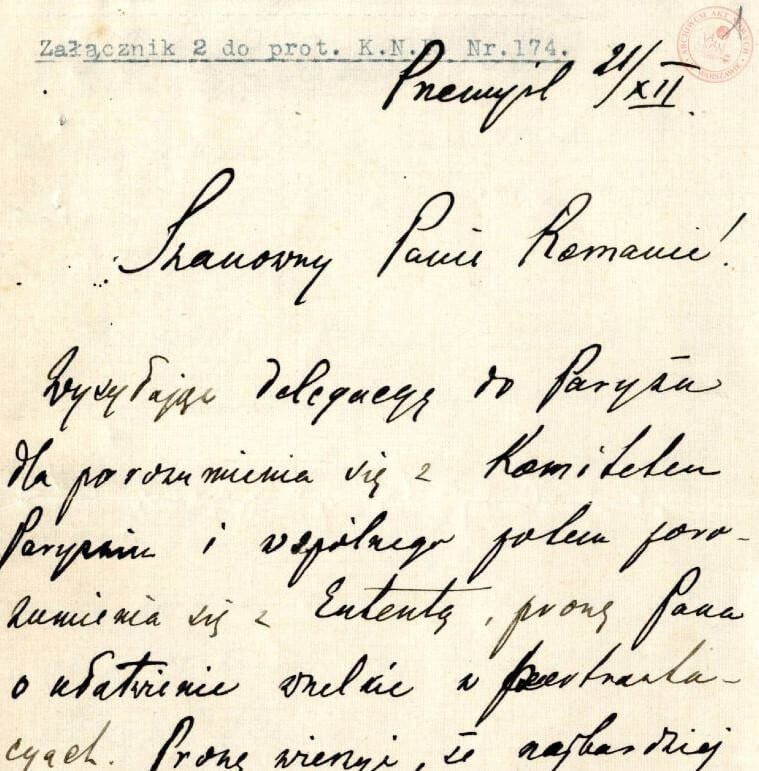 Załącznik 2 do prot. K.N.P. Nr.174.
Przemyśl 21/XII
Szanowny Panie Romanie!
Wysyłając delegacyę do Paryża
dla porozumienia się z Komitetem
Paryskim i wspólnego potem poro-
zumienia się z Ententą, proszę Pana
o ułatwienie wszelkie w pertrakta-
cyach. Proszę wierzyć, że najbardziej